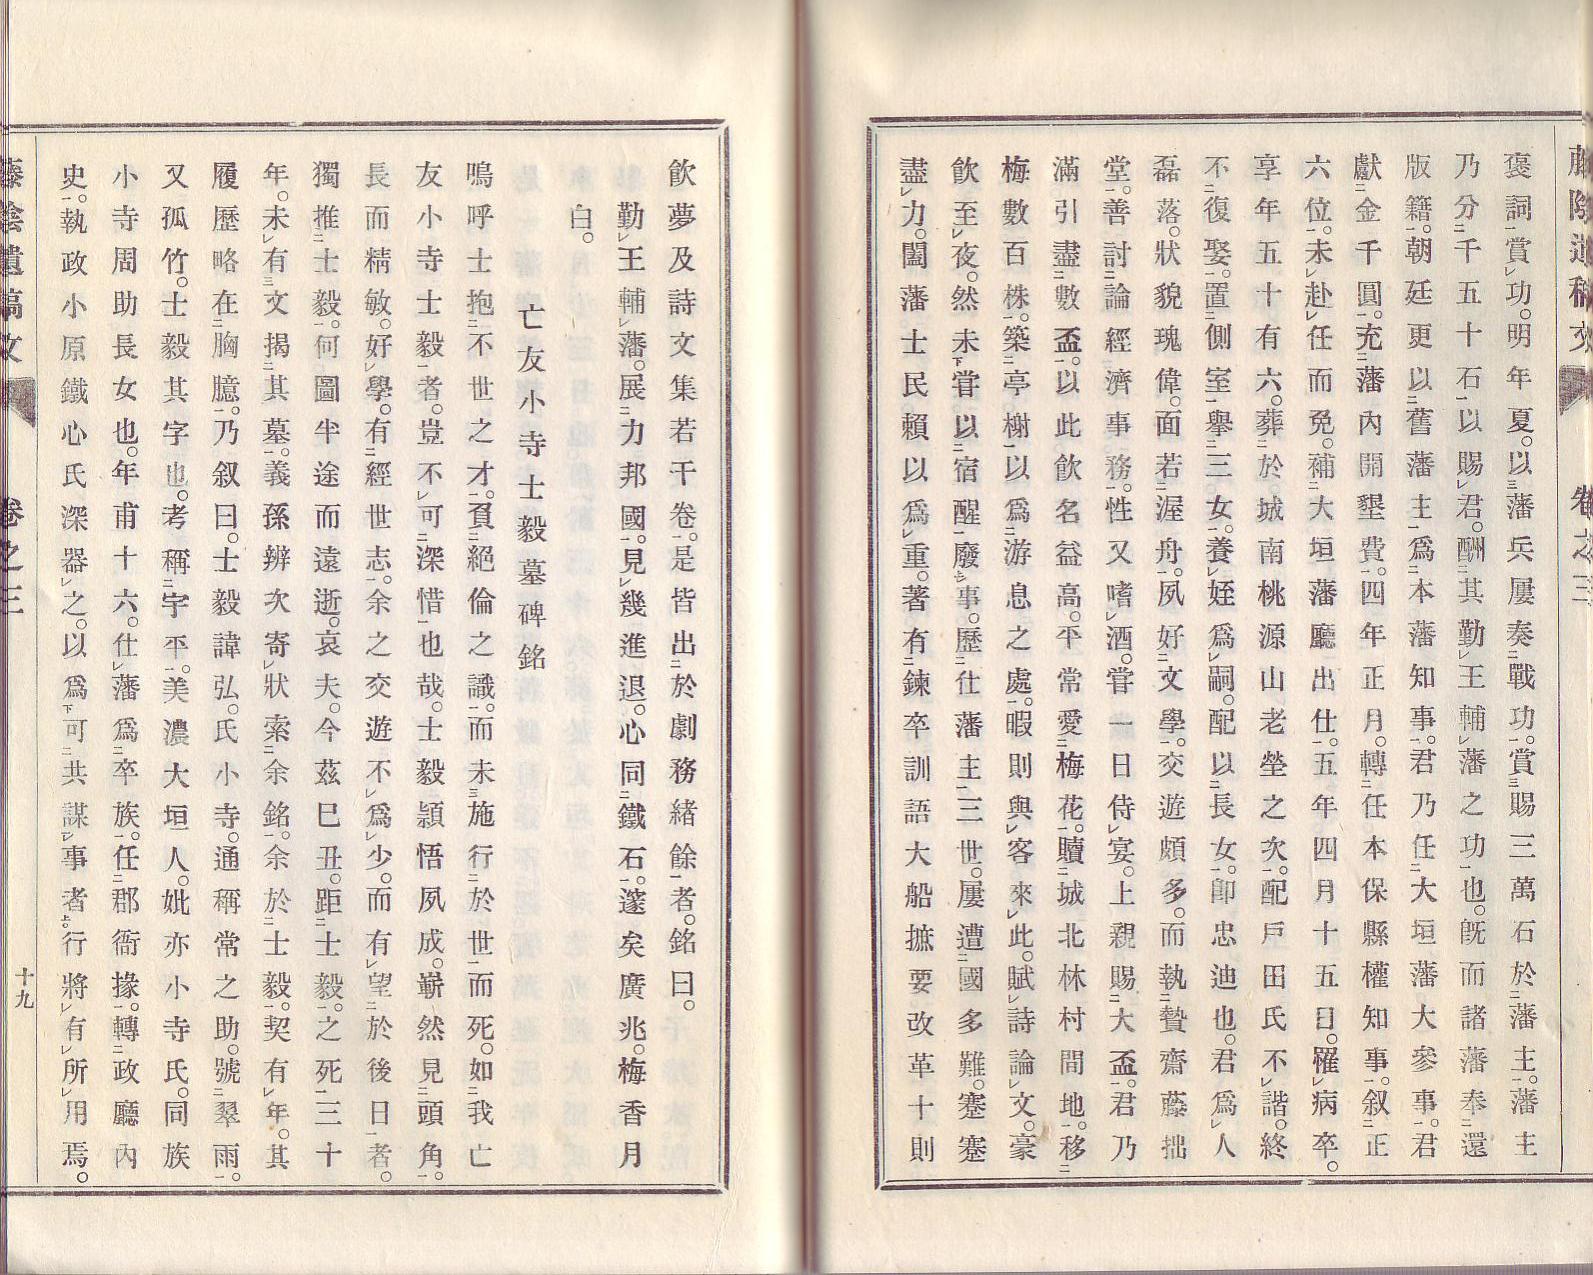 藤陰遺稿文 卷之三
褒詞賞功。明年夏。以藩兵屢奏戰功。賞賜三萬石於藩主。藩主
乃分千五十石以賜君。酬其勤王輔藩之功也。既而諸藩奉還
版籍。朝廷更以舊藩主爲本藩知事。君乃任大垣藩大參事。君
獻金千圓。充藩內開墾費。四年正月。轉任本保縣權知事。叙正
六位。未赴任而免。補大垣藩廳出仕。五年四月十五日。罹病卒。
享年五十有六。葬於城南桃源山老塋之次。配戶田氏不諧。終
不復娶。置側室擧三女。養姪爲嗣。配以長女。卽忠迪也。君爲人
磊落。狀貌瑰偉。面若渥舟。夙好文學。交遊頗多。而執贄齋藤拙
堂。善討論經濟事務。性又嗜酒。嘗一日侍宴。上親賜大盃。君乃
滿引盡數盃。以此飮名益高。平常愛梅花。贖城北林村間地。移
梅數百株。築亭榭以爲游息之處。暇則與客來此。賦詩論文。豪
飮至夜。然未嘗以宿醒廢事。歷仕藩主三世。屢遭國多難。蹇蹇
盡力。闔藩士民賴以爲重。著有鍊卒訓語大船摭要改革十則
飮夢及詩文集若干卷。是皆出於劇務緖餘者。銘曰。
勤王輔藩。展力邦國。見幾進退。心同鐵石。邃矣廣兆。梅香月
白。
亡友小寺士毅墓碑銘
嗚呼士抱不世之才。負絕倫之識。而未施行於世而死。如我亡
友小寺士毅者。豈不可深惜也哉。士毅顈悟夙成。嶄然見頭角。
長而精敏。好學。有經世志。余之交遊不爲少。而有望於後日者。
獨推士毅。何圖半途而遠逝。哀夫。今茲巳丑。距士毅之死三十
年。未有文揭其墓。義孫辨次寄狀索余銘。余於士毅。契有年。其
履歷略在胸臆。乃叙曰。士毅諱弘。氏小寺。通稱常之助。號翠雨。
又孤竹。士毅其字也。考稱宇平。美濃大垣人。妣亦小寺氏。同族
小寺周助長女也。年甫十六。仕藩爲卒族。任郡衙掾。轉政廳內
史。執政小原鐵心氏深器之。以爲可共謀事者。行將有所用焉。
藤陰遺稿文 卷之三 十九